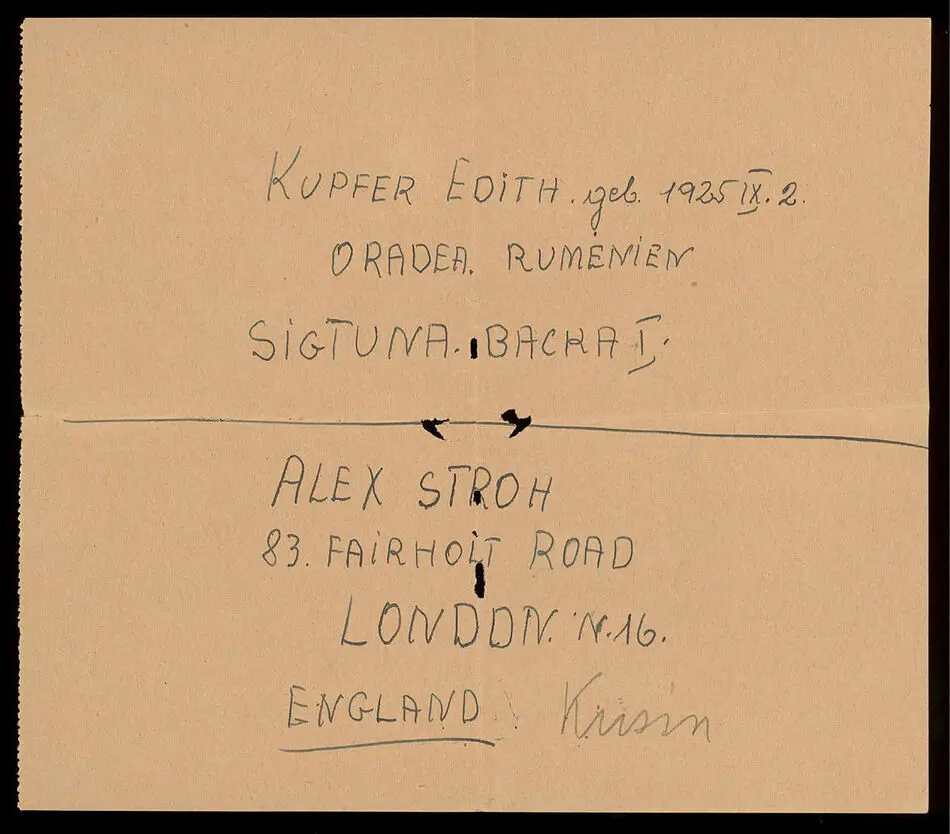 KUPFER EDITH. geb. 1925 IX. 2.
ORADEA. RUMÄNIEN
SIGTUNA. BACKA I.
ALEX STROH
83. FAIRHOLT ROAD
LONDON. N.16.
ENGLAND Kusin